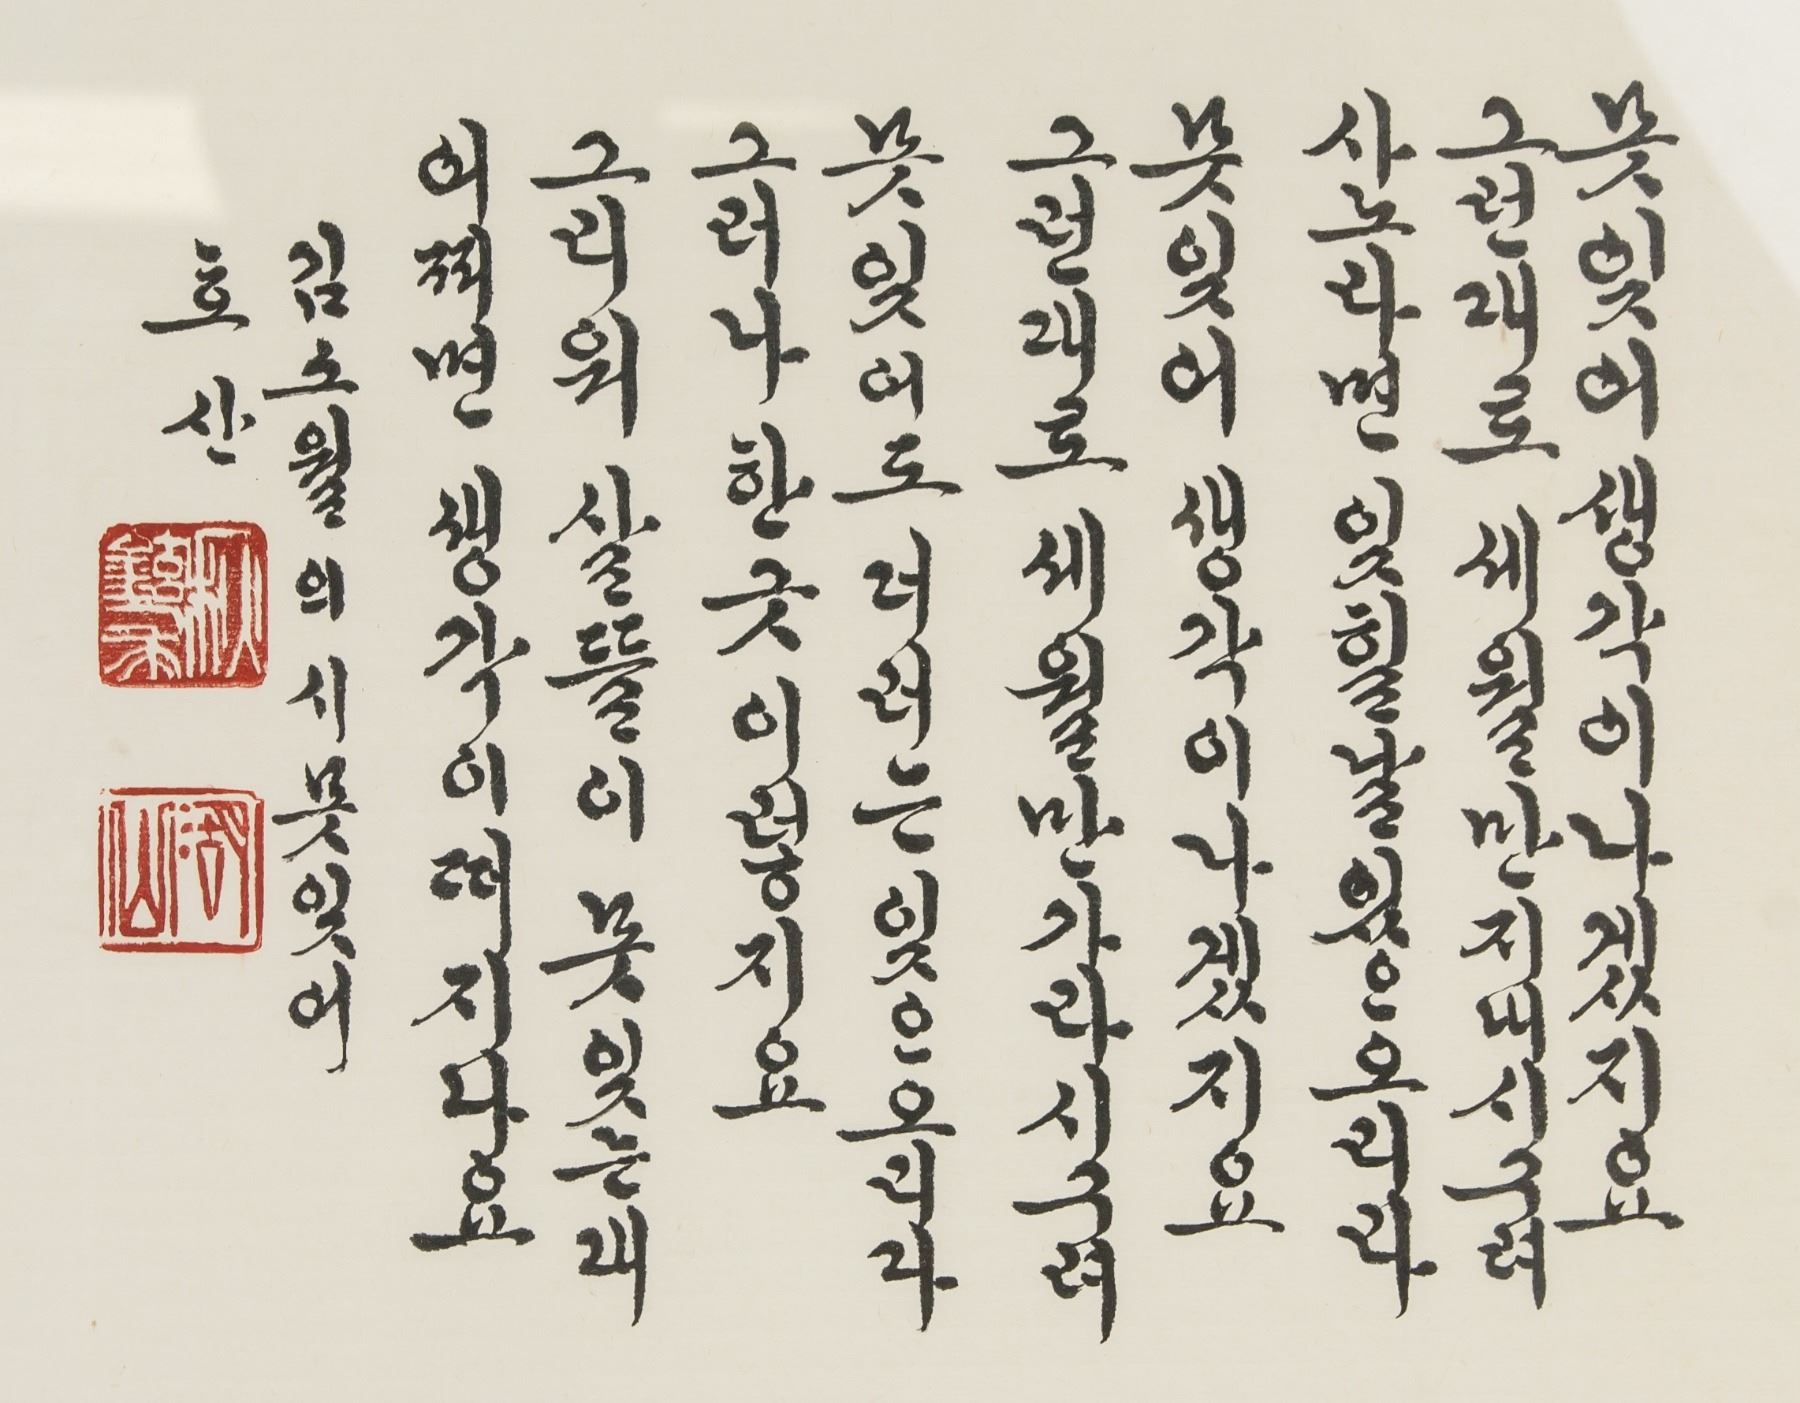 못잊어 생각이나겠지요
그런대로 세월만지내시구려
사노라면 잊힐날있으오리라
못잊어 생각이나겠지요
그런대로 세월만가라시구려
못잊어도 더러는잊으오리라
그러나 한긋 이렇지요
그리워 살뜰이 못잊는대
어쩌면 생각이떠지다요
김소월의 시 못잊어
호산